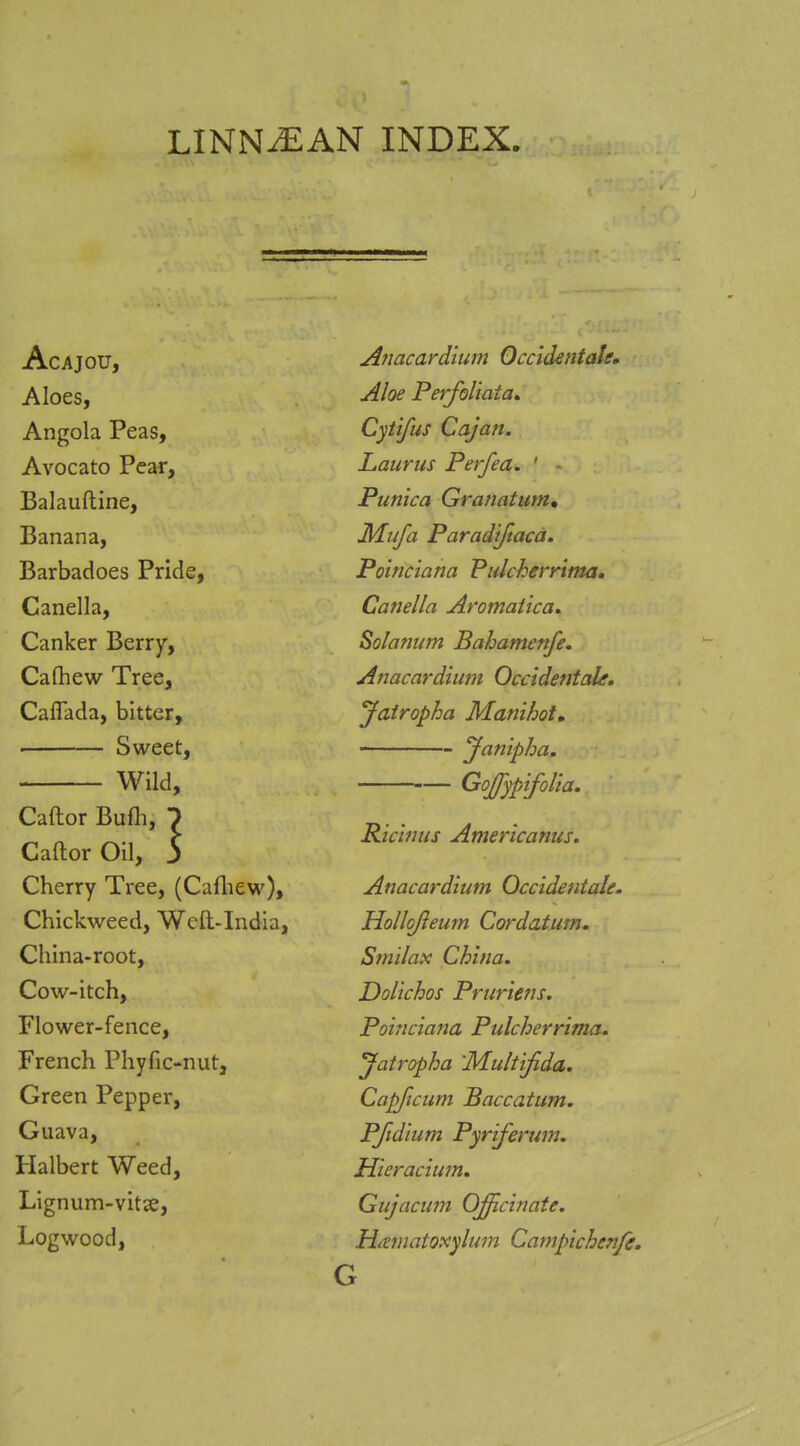 LINNÆAN INDEX.
Acajou, Anacardium Occidentale.
Aloes, Aloe Perfoliata.
Angola Peas, Cytiſus Cajan.
Avocato Pear, Laurus Perſea.
Balauſtine, Punica Granatum.
Banana, Muſa Paradiſiaca.
Barbadoes Pride, Poinciana Pulcherrima.
Canella, Canella Aromatica.
Canker Berry, Solanum Bahamenſe.
Caſhew Tree, Anacardium Occidentale.
Caſſada, bitter, Jatropha Manihot.
——— Sweet, ——— Janipha.
——— Wild, ——— Goſſypifolia.
Caſtor Buſh, }
Caſtor Oil, } Ricinus Americanus.
Cherry Tree, (Caſhew), Anacardium Occidentale.
Chickweed, Weſt-India, Holloſteum Cordatum.
China-root, Smilax China.
Cow-itch, Dolichos Pruriens.
Flower-fence, Poinciana Pulcherrima.
French Phyſic-nut, Jatropha Multifida.
Green Pepper, Capſicum Baccatum.
Guava, Pſidium Pyriferum.
Halbert Weed, Hieracium.
Lignum-vitæ, Gujacum Officinate.
Logwood, Hæmatoxylum Campichenſe.
G